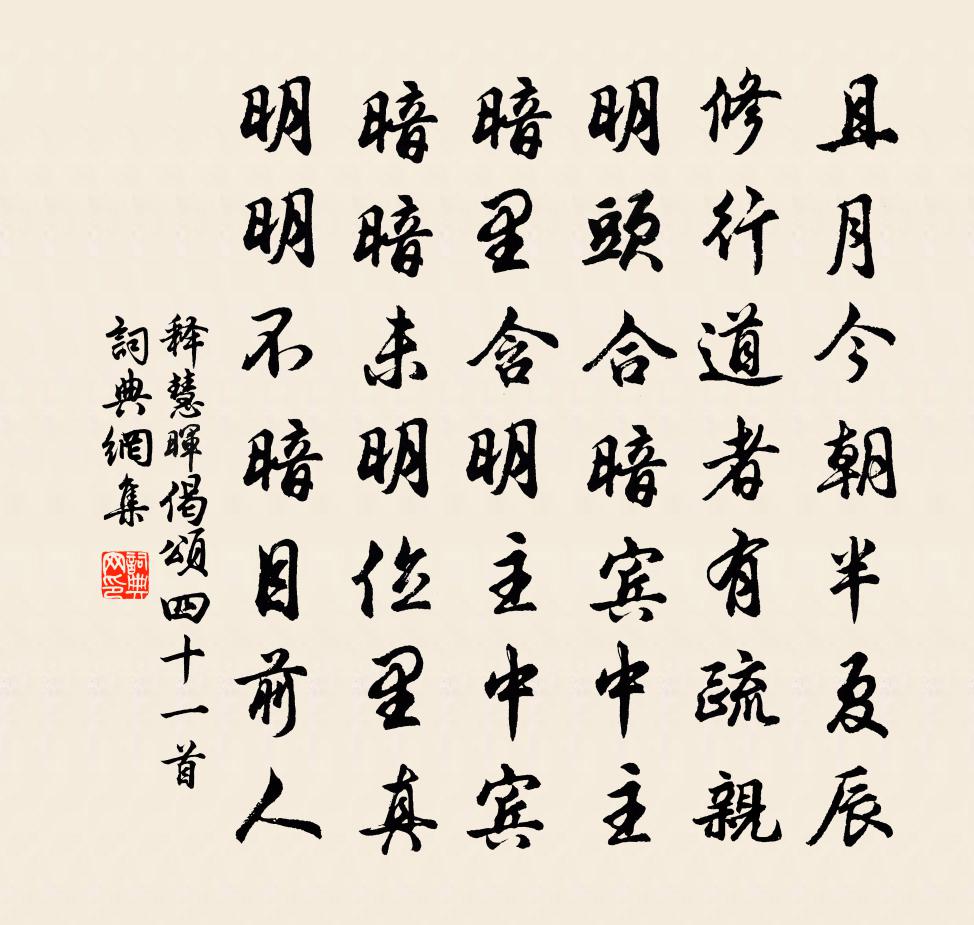 且月今朝半夏辰
修行道者有疏親
明頭合暗賓中主
暗里含明主中賓
暗暗未明位里真
明明不暗目前人
释慧暉偈頌四十一首
詞典網集
詞典网印